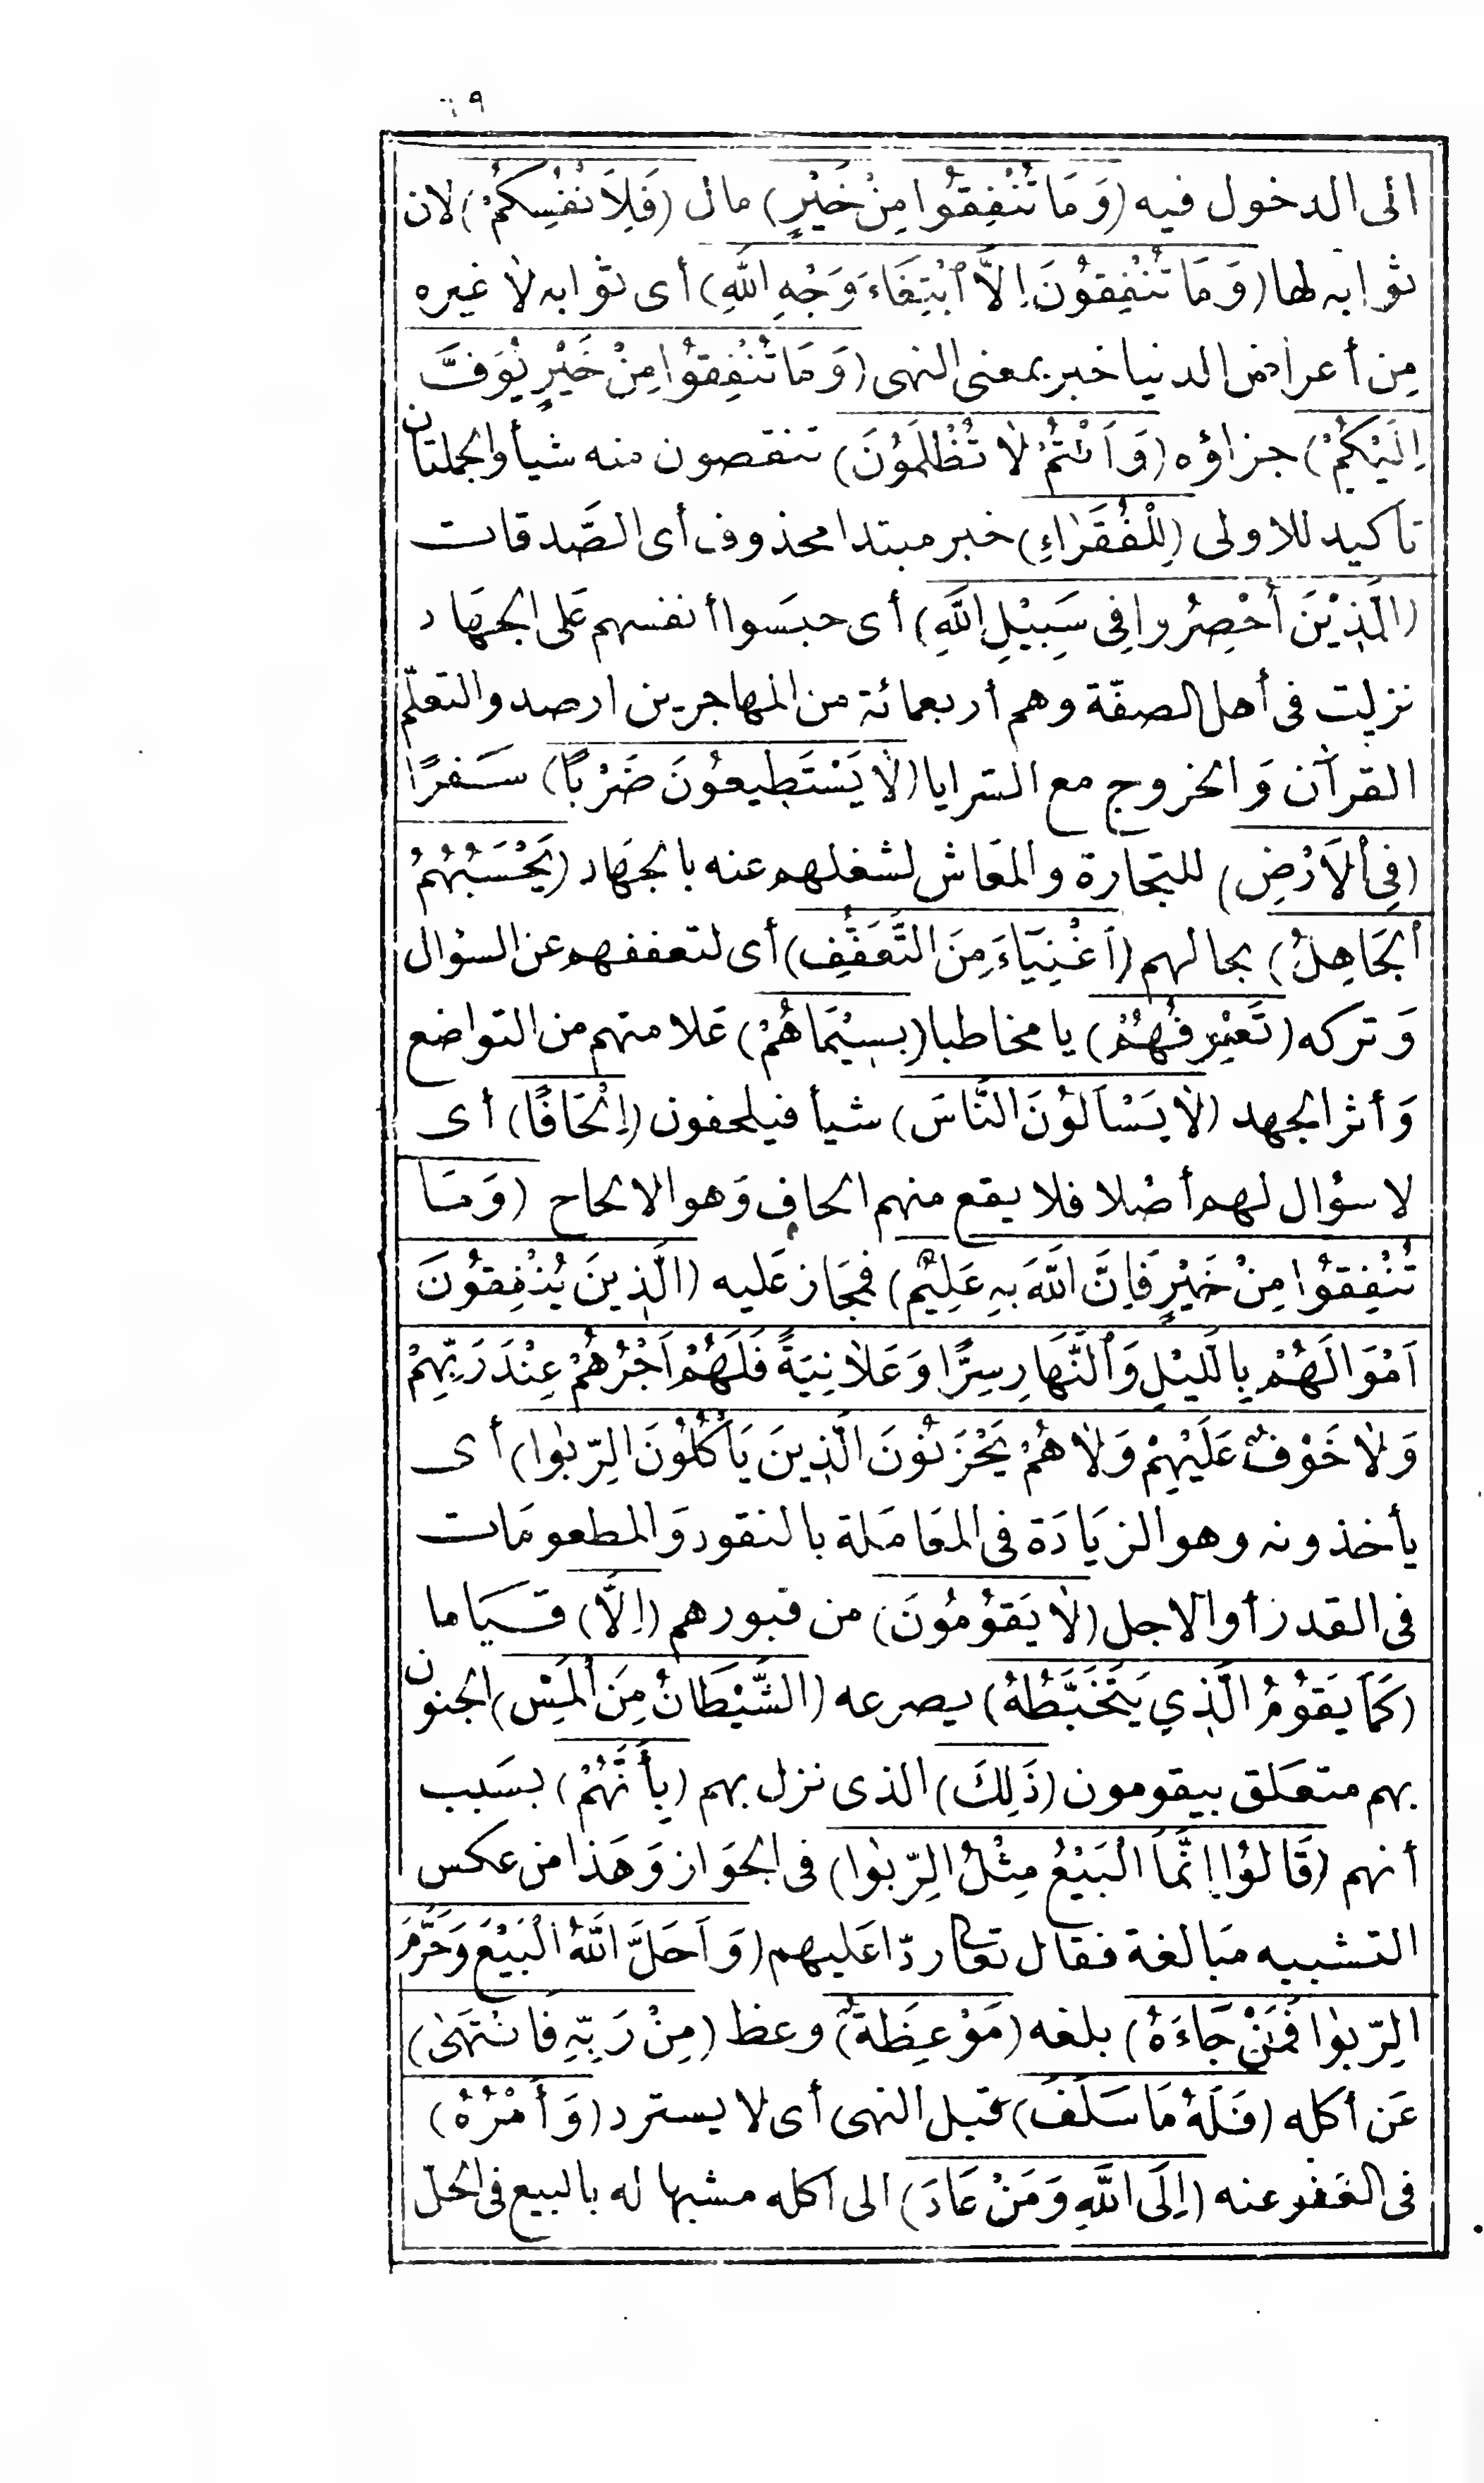 ٦٩
الى الدخول فيه (وَمَا تُنْفِقُوا مِنْ خَيْرٍ) مال (فَلِاَنْفُسِكُمْ) لان
ثوابه لها (وَمَا تُنْفِقُونَ اِلَّا ابْتِغَاءَ وَجْهِ اللّٰهِ) أى ثوابه لا غيره
مِن أعراض الدنيا خبر بمعنى النهى (وَمَا تُنْفِقُوا مِنْ خَيْرٍ يُوَفَّ
اِلَيْكُمْ) جزاؤه (وَاَنْتُمْ لَا تُظْلَمُوْنَ) تنقصون منه شيأ والجملتان
تأكيد للاولى (لِلْفُقَرَاءِ) خبر مبتدا محذوف أى الصَّدقات
(الَّذِيْنَ اُحْصِرُوا فِى سَبِيْلِ اللّٰهِ) أى حبَسوا أنفسهم عَلى الجهَاد
نزلت فى أهل الصفّة وهم أربعمائة من المهاجرين ارصدوا لتعلّم
القرآن وَالخروج مع السّرايا (لَا يَسْتَطِيعُونَ ضَرْبًا) سَفرًا
(فِى الْاَرْضِ) للتجارة والمعَاش لشغلهم عنه بالجهَاد (يَحْسَبُهُمُ
الْجَاهِلُ) بحالهم (اَغْنِيَآءَ مِنَ التَّعَفُّفِ) أى لتعففهم عن السؤال
وَتركه (تَعْرِفُهُمْ) يا مخاطبا (بِسِيْمَاهُمْ) عَلامتهم من التواضع
وَأثر الجهد (لَا يَسْاَلُوْنَ النَّاسَ) شيأ فيلحفون (اِلْحَافًا) أى
لا سؤال لهم أصْلا فلا يقع منهم الحاف وَهو الالحاح (وَمَا
تُنْفِقُوْا مِنْ خَيْرٍ فَاِنَّ اللّٰهَ بِهِ عَلِيْمٌ) فمجَاز عَليه (الَّذِينَ يُنْفِقُونَ
اَمْوَالَهُمْ بِاللَّيْلِ وَالنَّهَارِ سِرًّا وَعَلَانِيَةً فَلَهُمْ اَجْرُهُمْ عِنْدَ رَبِّهِمْ
وَلَا خَوْفٌ عَلَيْهِمْ وَلَا هُمْ يَحْزَنُوْنَ الَّذِينَ يَأْكُلُوْنَ الرِّبٰوا) أى
يأخذونه وهو الزيَادَة فى المعَامَلة بالنقود وَالمطعومَات
فى القدر أو الاجل (لَا يَقُوْمُوْنَ) من قبورهم (اِلَّا) قيَاما
(كَمَا يَقُوْمُ الَّذِي يَتَخَبَّطُهُ) يصرعه (الشَّيْطَانُ مِنَ الْمَسِّ) الجنون
بهم متعَلق بيقومون (ذَلِكَ) الذى نزل بهم (بِأَنَّهُمْ) بسَبب
أنهم (قَالُوْا اِنَّمَا الْبَيْعُ مِثْلُ الرِّبٰوا) فى الجوَاز وَهَذا من عكس
التشبيه مبَالغة فقال تعالى ردّا عَليهم (وَاَحَلَّ اللّٰهُ الْبَيْعَ وَحَرَّمَ
الرِّبٰوا فَمَنْ جَاءَهُ) بلغه (مَوْعِظَةٌ) وعظ (مِنْ رَبِّهِ فَانْتَهَىٰ)
عَن أكله (فَلَهُ مَا سَلَفَ) قبل النهى أى لا يسترد (وَأَمْرُهُ)
فى العَفو عنه (اِلَى اللّٰهِ وَمَنْ عَادَ) الى أكله مشبها له بالبيع فى الحلّ